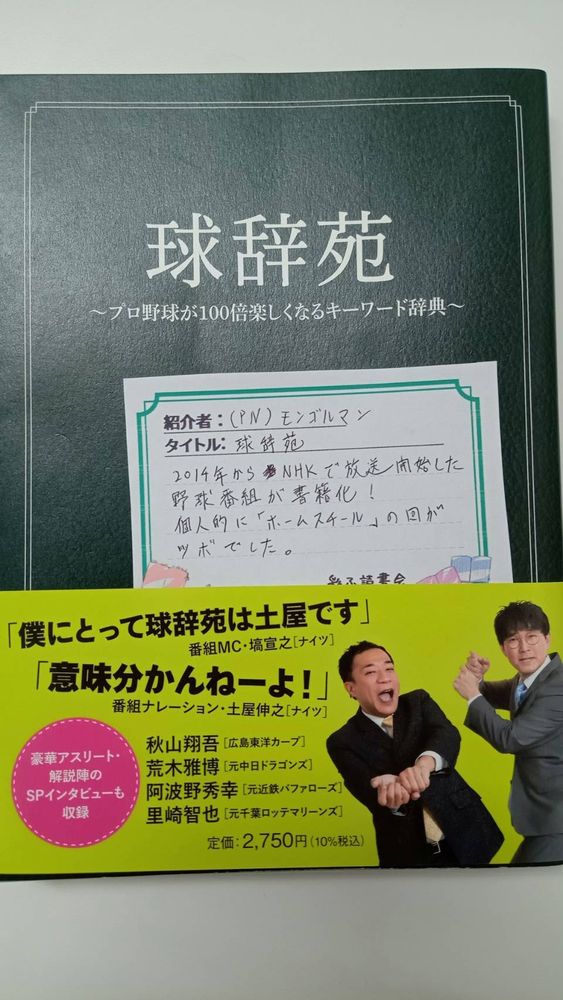 球辞苑
～プロ野球が100倍楽しくなるキーワード辞典～
紹介者：(PN) モンゴルマン
タイトル：球辞苑
2014年からNHKで放送開始した
野球番組が書籍化！
個人的に「ホームスチール」の回が
ツボでした。
彩ふ読書会
「僕にとって球辞苑は土屋です」
番組MC・塙宣之［ナイツ］
「意味分かんねーよ！」
番組ナレーション・土屋伸之［ナイツ］
豪華アスリート・
解説陣の
SPインタビューも
収録
秋山翔吾［広島東洋カープ］
荒木雅博［元中日ドラゴンズ］
阿波野秀幸［元近鉄バファローズ］
里崎智也［元千葉ロッテマリーンズ］
定価：2,750円（10%税込）